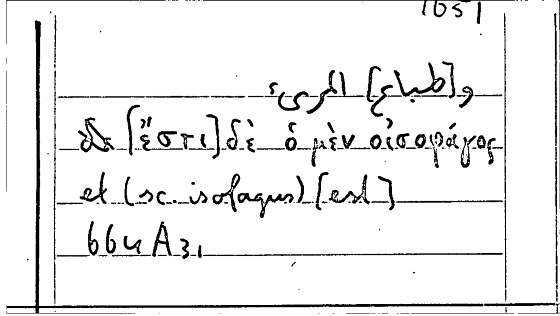 1651
و[طباع] المرىء
[ἔστι] δὲ ὁ μὲν οἰσοφάγος
et (sc. isofagus) [est]
664 A 31